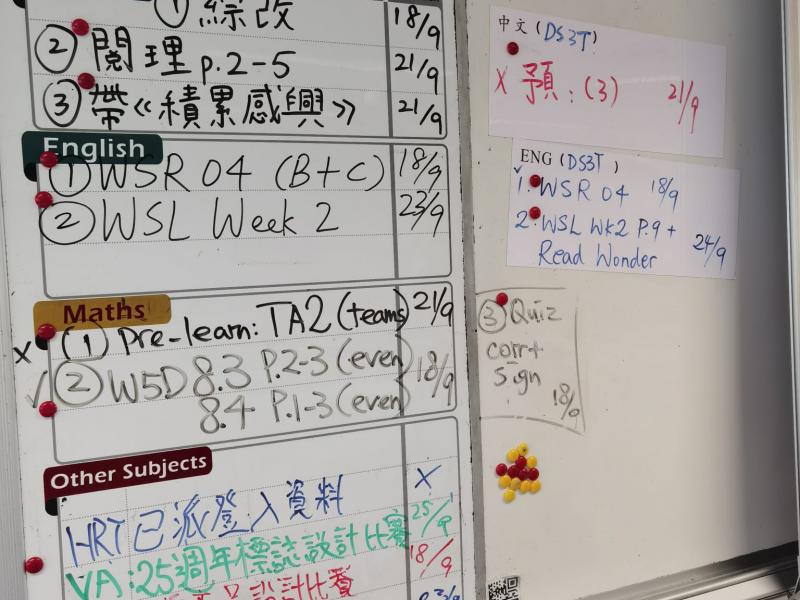 ① 綜改 18/9
② 閱理 p.2-5 21/9
③ 帶《積累感興》 21/9
English
① WSR 04 (B+C) 18/9
② WSL Week 2 23/9
Maths
× (1) Pre-learn: TA2 (teams) 21/9
✓ ② W5D 8.3 P.2-3 (even) 18/9
8.4 P.1-3 (even)
Other Subjects
HRT 已派登入資料 ×
VA: 25週年標誌設計比賽 25/9
品設計比賽 18/9
中文 (DS3T)
× 預: (3) 21/9
ENG (DS3T)
✓ 1. WSR 04 18/9
2. WSL WK2 P.9 +
Read Wonder 24/9
③ Quiz
corr+
sign
18/9